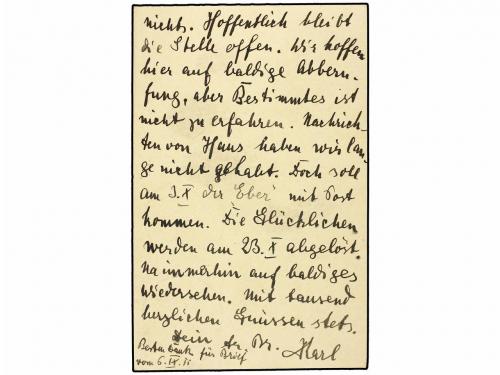 nichts. Hoffentlich bleibt
die Stelle offen. Wir hoffen
hier auf baldige Abberu-
fung, aber Bestimmtes ist
nicht zu erfahren. Nachrich-
ten von Haus haben wir lan-
ge nicht gehabt. Doch soll
am 3.X der "Eber" mit Post
kommen. Die Glücklichen
werden am 23.X abgelöst.
Na immerhin auf baldiges
wiedersehen. Mit tausend
herzlichen Grüssen stets.
Dein tr. Br.
Karl
Besten Dank für Brief
vom 6.IX.